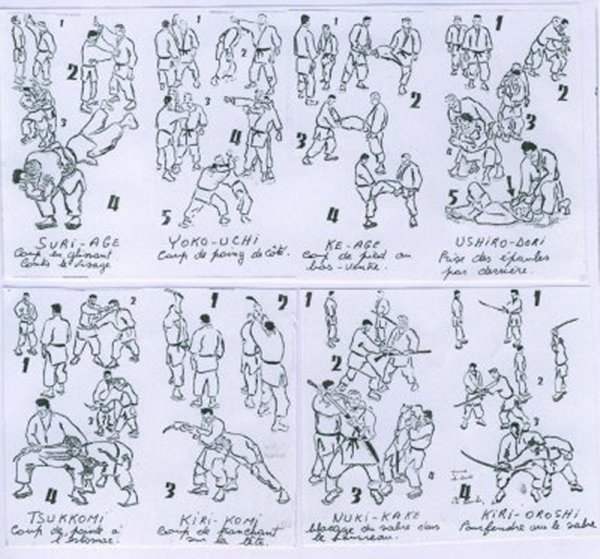 1
2
3
4
SURI-AGE
Coup en glissant
contre le visage
1
2
3
4
5
YOKO-UCHI
Coup de poing de côté.
1
2
3
4
KE-AGE
Coup de pied au
bas-ventre.
1
2
3
4
5
USHIRO-DORI
Prise des épaules
par derrière.
1
2
3
4
TSUKKOMI
Coup de pointe à
l'estomac.
1
2
3
KIRI-KOMI
Coup de tranchant
sur la tête
1
2
3
4
NUKI-KAKE
blocage du sabre dans
le fourreau.
1
2
3
4
KIRI-OROSHI
Pourfendre avec le sabre